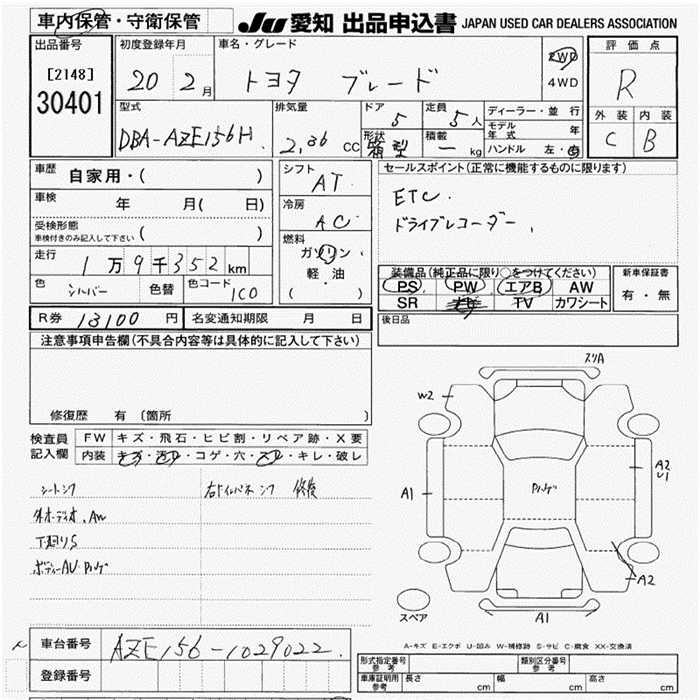 車内保管・守衛保管
JU 愛知 出品申込書 JAPAN USED CAR DEALERS ASSOCIATION
出品番号
[2148]
30401
初度登録年月
20 2月
車名・グレード
トヨタ ブレード
2WD
4WD
評価点
R
外装 内装
C B
型式
DBA-AZE156H
排気量
2.36 cc
ドア
5
定員
5人
形状
箱型
積載
ー kg
ディーラー・並行
モデル年式 年
ハンドル 左・右
車歴
自家用・( )
車検
年 月( 日)
受検形態
車検付きのみ記入して下さい ( )
走行
1万9千352km
色
シルバー
色替
色コード
1C0
シフト
AT
冷房
AC
燃料
ガソリン
軽・油
( )
セールスポイント(正常に機能するものに限ります)
ETC.
ドライブレコーダー,
装備品(純正品に限り○をつけてください)
PS PW エアB AW
SR TV カワシート
新車保証書
有・無
R券 13100 円
名変通知期限 月 日
後日品
注意事項申告欄(不具合内容等は具体的に記入して下さい)
修復歴 有 (箇所 )
検査員
記入欄
FW キズ・飛石・ヒビ割・リペア跡・X要
内装 キズ・汚れ・コゲ・穴・スレ・キレ・破レ
シートシワ
外オーディオ.AW
下廻りS
右インパネ 修復
スリA
W2
A1
A2
U1
A2
A1
スペア
A-キズ E-エクボ U-凹み W-補修跡 S-サビ C-腐食 XX-交換済
車台番号
AZE156-1029022
登録番号
形式指定番号
参考
類別区分番号
参考
車庫証明用
参考
長さ cm
幅 cm
高さ cm